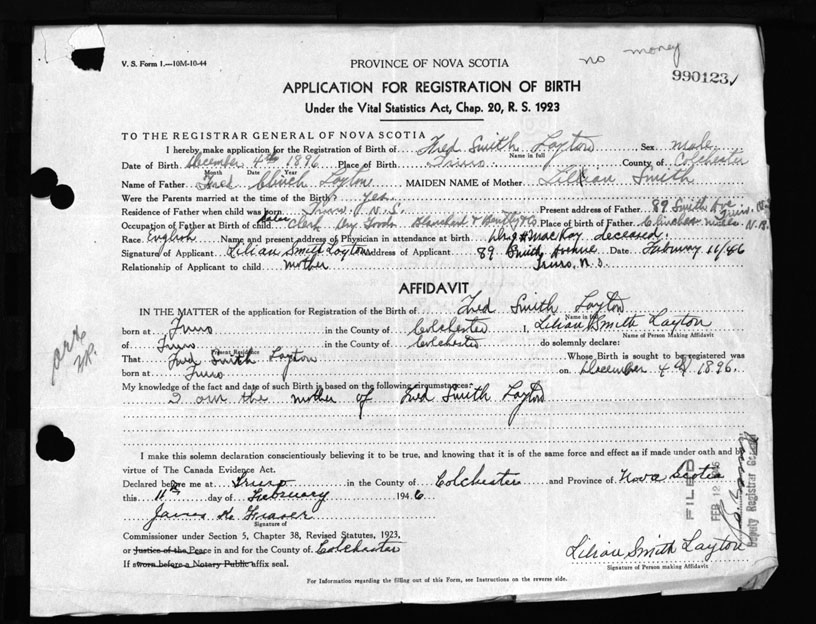 no money
V. S. Form 1.—10M-10-44
PROVINCE OF NOVA SCOTIA
990123
APPLICATION FOR REGISTRATION OF BIRTH
Under the Vital Statistics Act, Chap. 20, R. S. 1923
TO THE REGISTRAR GENERAL OF NOVA SCOTIA
I hereby make application for the Registration of Birth of Fred Smith Layton Sex male
Name in full
Date of Birth December 4th 1896 Place of Birth Truro County of Colchester
Month Day Year
Name of Father Fred Clinch Layton MAIDEN NAME of Mother Lillian Smith
Were the Parents married at the time of Birth? Yes
Residence of Father when child was born Truro N.S. Present address of Father 89 Smith Ave Truro, N.S.
Occupation of Father at Birth of child Sales Clerk Dry Goods Blanchard & Bentley Co Place of Birth of Father Clinches Mills N.B.
Race English Name and present address of Physician in attendance at birth MacKay deceased
Signature of Applicant Lilian Smith Layton Address of Applicant 89 Smith Avenue Date February 11/46
Relationship of Applicant to child mother Truro, N.S.
AFFIDAVIT
IN THE MATTER of the application for Registration of the Birth of Fred Smith Layton
Name in full
born at Truro in the County of Colchester I, Lilian Smith Layton
Name of Person Making Affidavit
of Truro in the County of Colchester do solemnly declare:
Present Residence
That Fred Smith Layton Whose Birth is sought to be registered was
born at Truro on December 4th 1896.
My knowledge of the fact and date of such Birth is based on the following circumstances:
I am the mother of Fred Smith Layton
I make this solemn declaration conscientiously believing it to be true, and knowing that it is of the same force and effect as if made under oath and by
virtue of The Canada Evidence Act.
Declared before me at Truro in the County of Colchester and Province of Nova Scotia
this 11th day of February 1946
James K. Fraser
Signature of
Commissioner under Section 5, Chapter 38, Revised Statutes, 1923,
or Justice of the Peace in and for the County of Colchester
If sworn before a Notary Public affix seal.
FILED
FEB 12
Deputy Registrar General
Lilian Smith Layton
Signature of Person making Affidavit
For Information regarding the filling out of this Form, see Instructions on the reverse side.